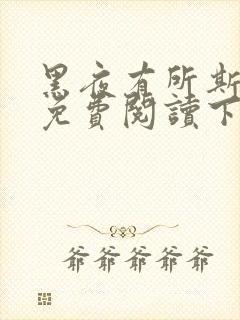 黑夜有所斯
免費閱讀下
爺爺爺爺爺